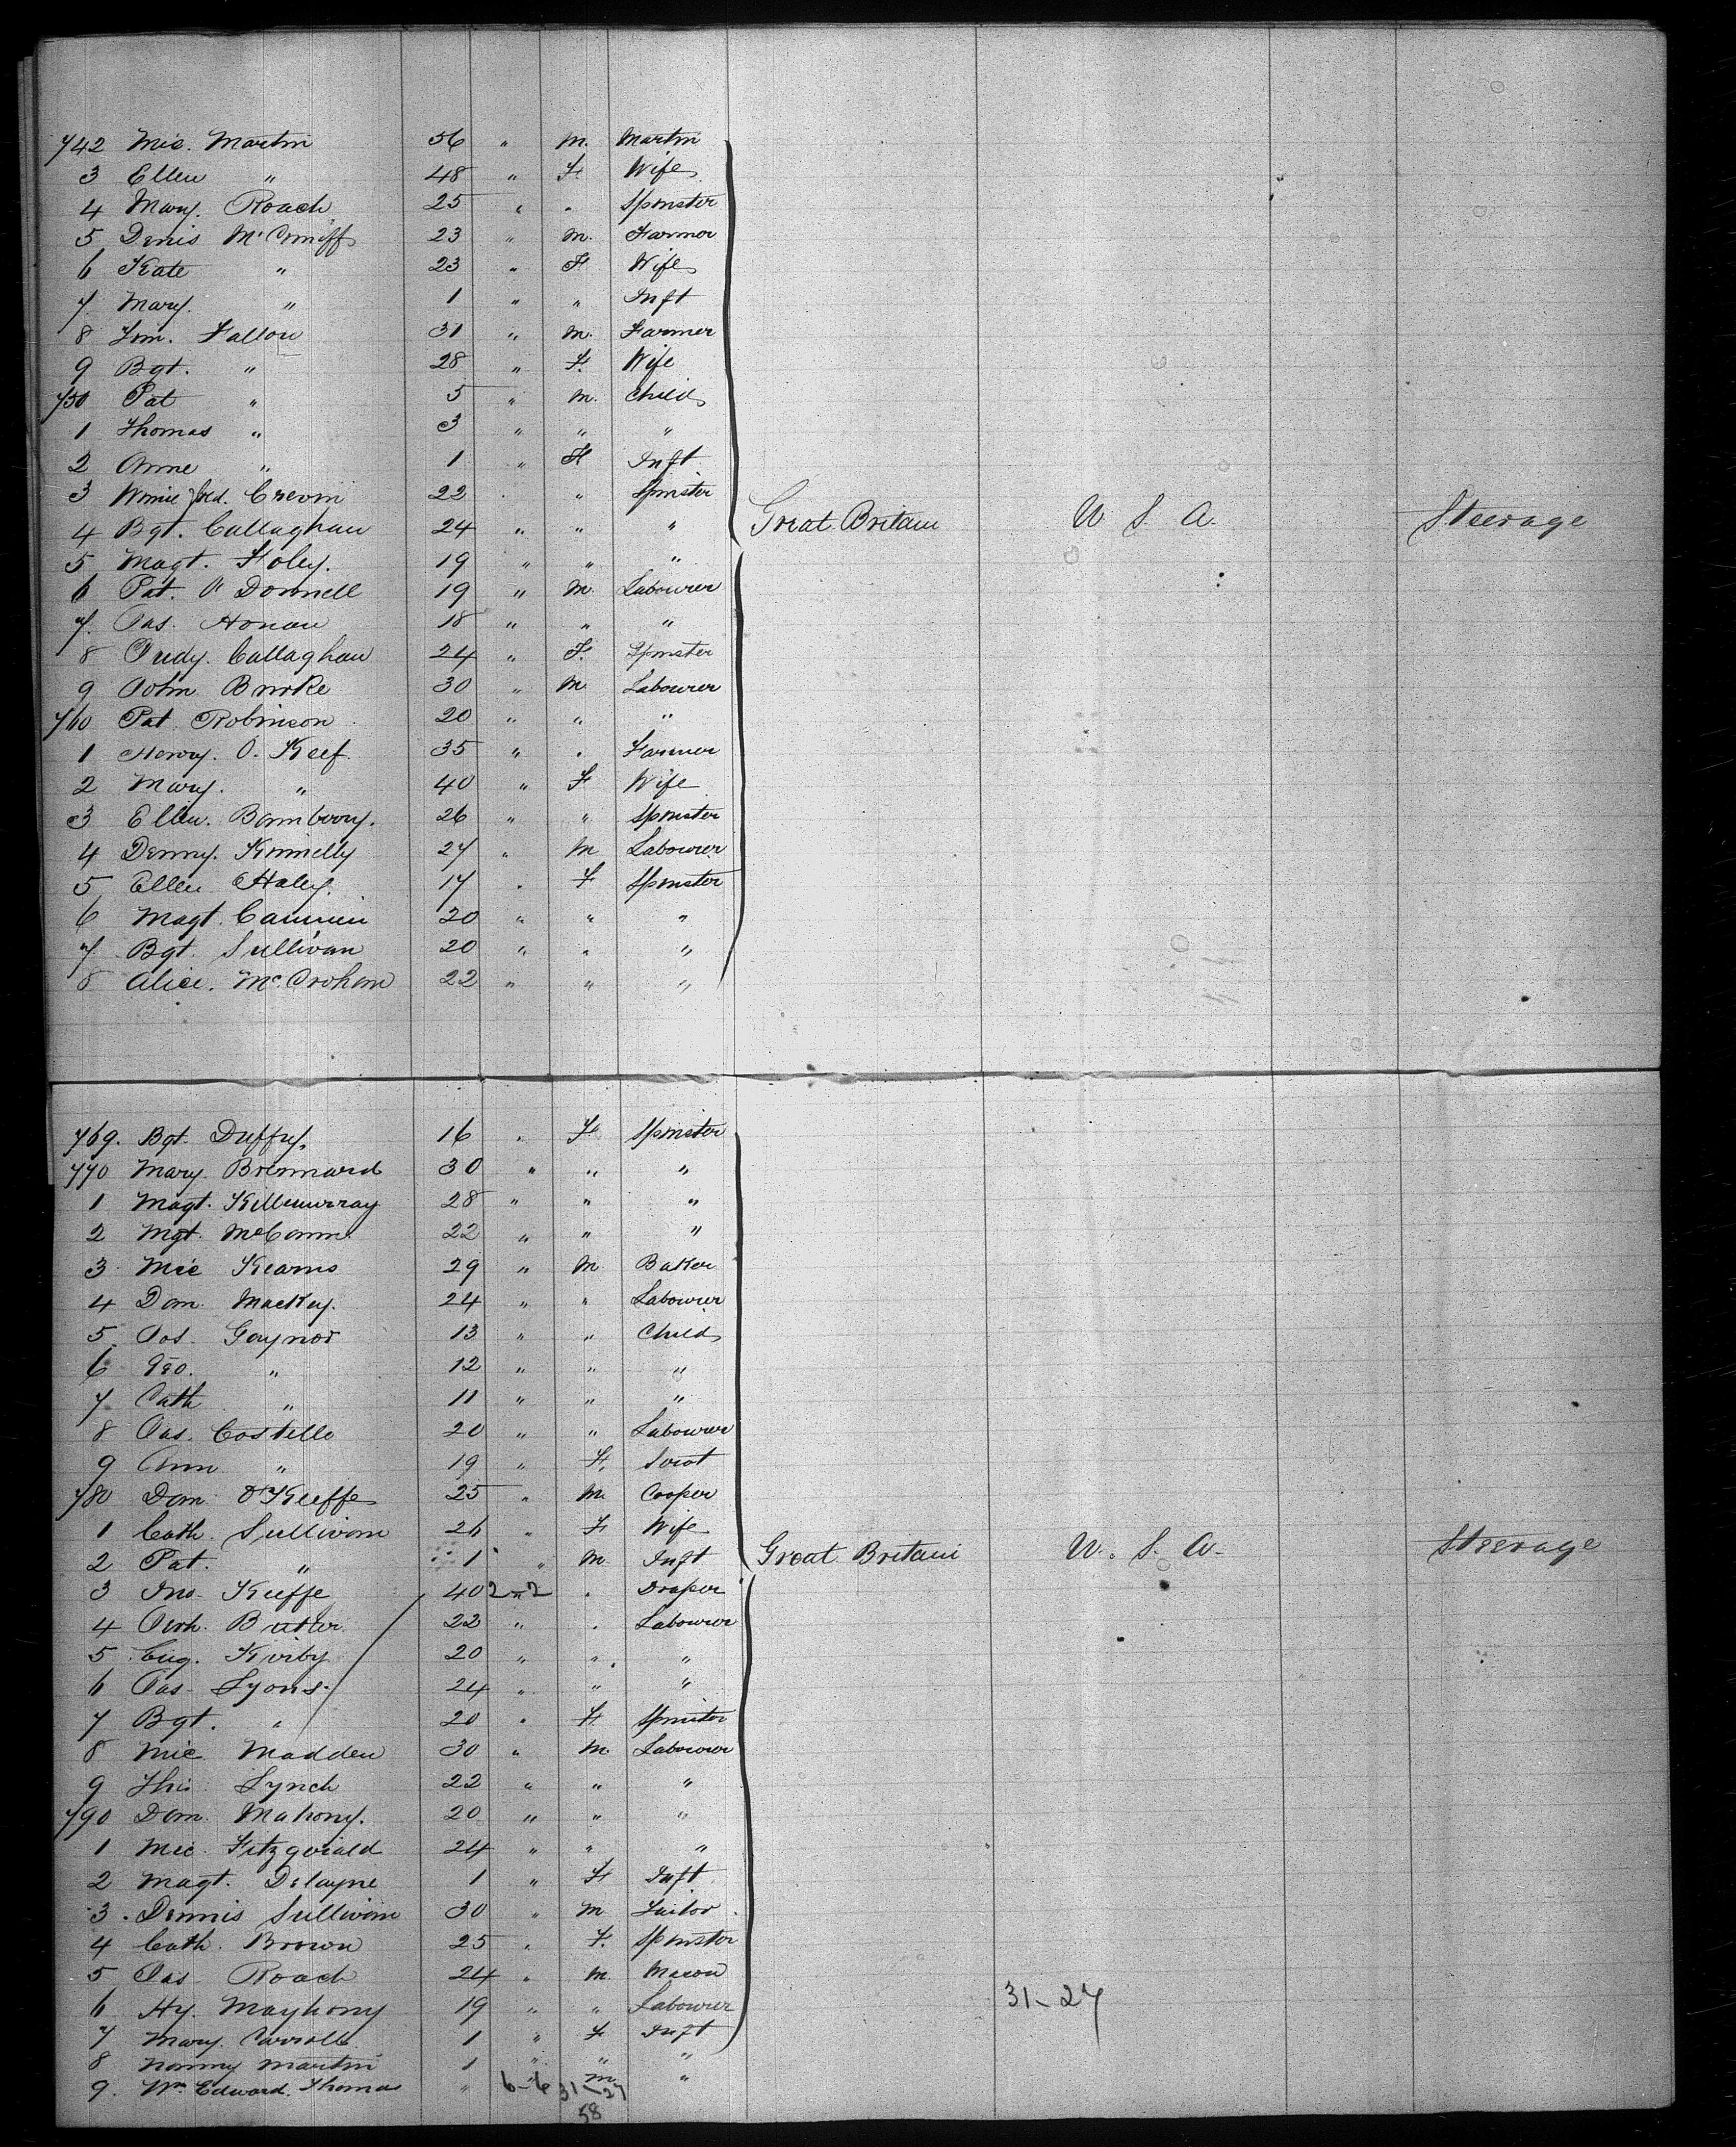 742 Mic. Martin 56 " M. Martin
3 Ellen " 48 " F Wife
4 Mary. Roach 25 " " Spinster
5 Denis McConiff 23 " M. Farmer
6 Kate " 23 " F Wife
7 Mary. " 1 " " Inft
8 Tim. Fallon 31 " M. Farmer
9 Bgt. " 28 " F. Wife
750 Pat " 5 " M. Child
1 Thomas " 3 " " "
2 Anne " 1 " F Inft
3 Crevin 22 " Spinster
4 Bgt. Callaghan 24 " " " Great Britain U. S. A. Steerage
5 Magt. Foley. 19 " " "
6 Pat. O'Donnell 19 " M. Labourer
7. Jas. Honan 18 " " "
8 Judy. Callaghan 24 " F. Spinster
9 John Burke 30 " M Labourer
760 Pat Robinson 20 " " "
1 Henry. O. Keef. 35 " " Farmer
2 Mary. " 40 " F Wife
3 Ellen. Bambury. 26 " " Spinster
4 Denny. Kinnelly 27 " M Labourer
5 Ellen Haley. 17 " F Spinster
6 Magt. 20 " " "
7 Bgt. Sullivan 20 " " "
8 Alice. McCrohan 22 " " "
769. Bgt. Duffy. 16 " F Spinster
770 Mary Brennard 30 " " "
1 Magt. Killmurray 28 " " "
2 Mgt. McCann 22 " " "
3 Mic Kearns 29 " M Baker
4 Dan. Mackey. 24 " " Labourer
5 Jos. Gaynor 13 " " Child
6 Geo. " 12 " " "
7 Cath " 11 " " "
8 Jas. Costello 20 " " Labourer
9 Ann " 19 " F. Servt
780 Dan O'Keeffe 25 " M. Cooper
1 Cath. Sullivan 26 " F Wife
2 Pat. " 1 " M Inft Great Britain U. S. A. Steerage
3 Jno. Keeffe 40 2-2 " Draper
4 Butler 22 " " Labourer
5 Eug. Kirby 20 " " "
6 Jas. Lyons 24 " " "
7 Bgt. " 20 " F. Spinster
8 Mic Madden 30 " M. Labourer
9 Lynch 22 " " "
790 Dan. Mahony. 20 " " "
1 Mic. Fitzgerald 24 " " "
2 Magt. Delayne 1 " F Inft
3. Dennis Sullivan 30 " M Tailor
4 Cath. Brown 25 " F. Spinster
5 Jas. Roach 24 " M. Mason
6 Hy. Mayhony 19 " " Labourer 31-27
7 Mary. Carroll 1 " F Inft
8 Nanny Martin 1 " " "
9. Wm Edward. Thomas " 6-6 M "
31-27
58